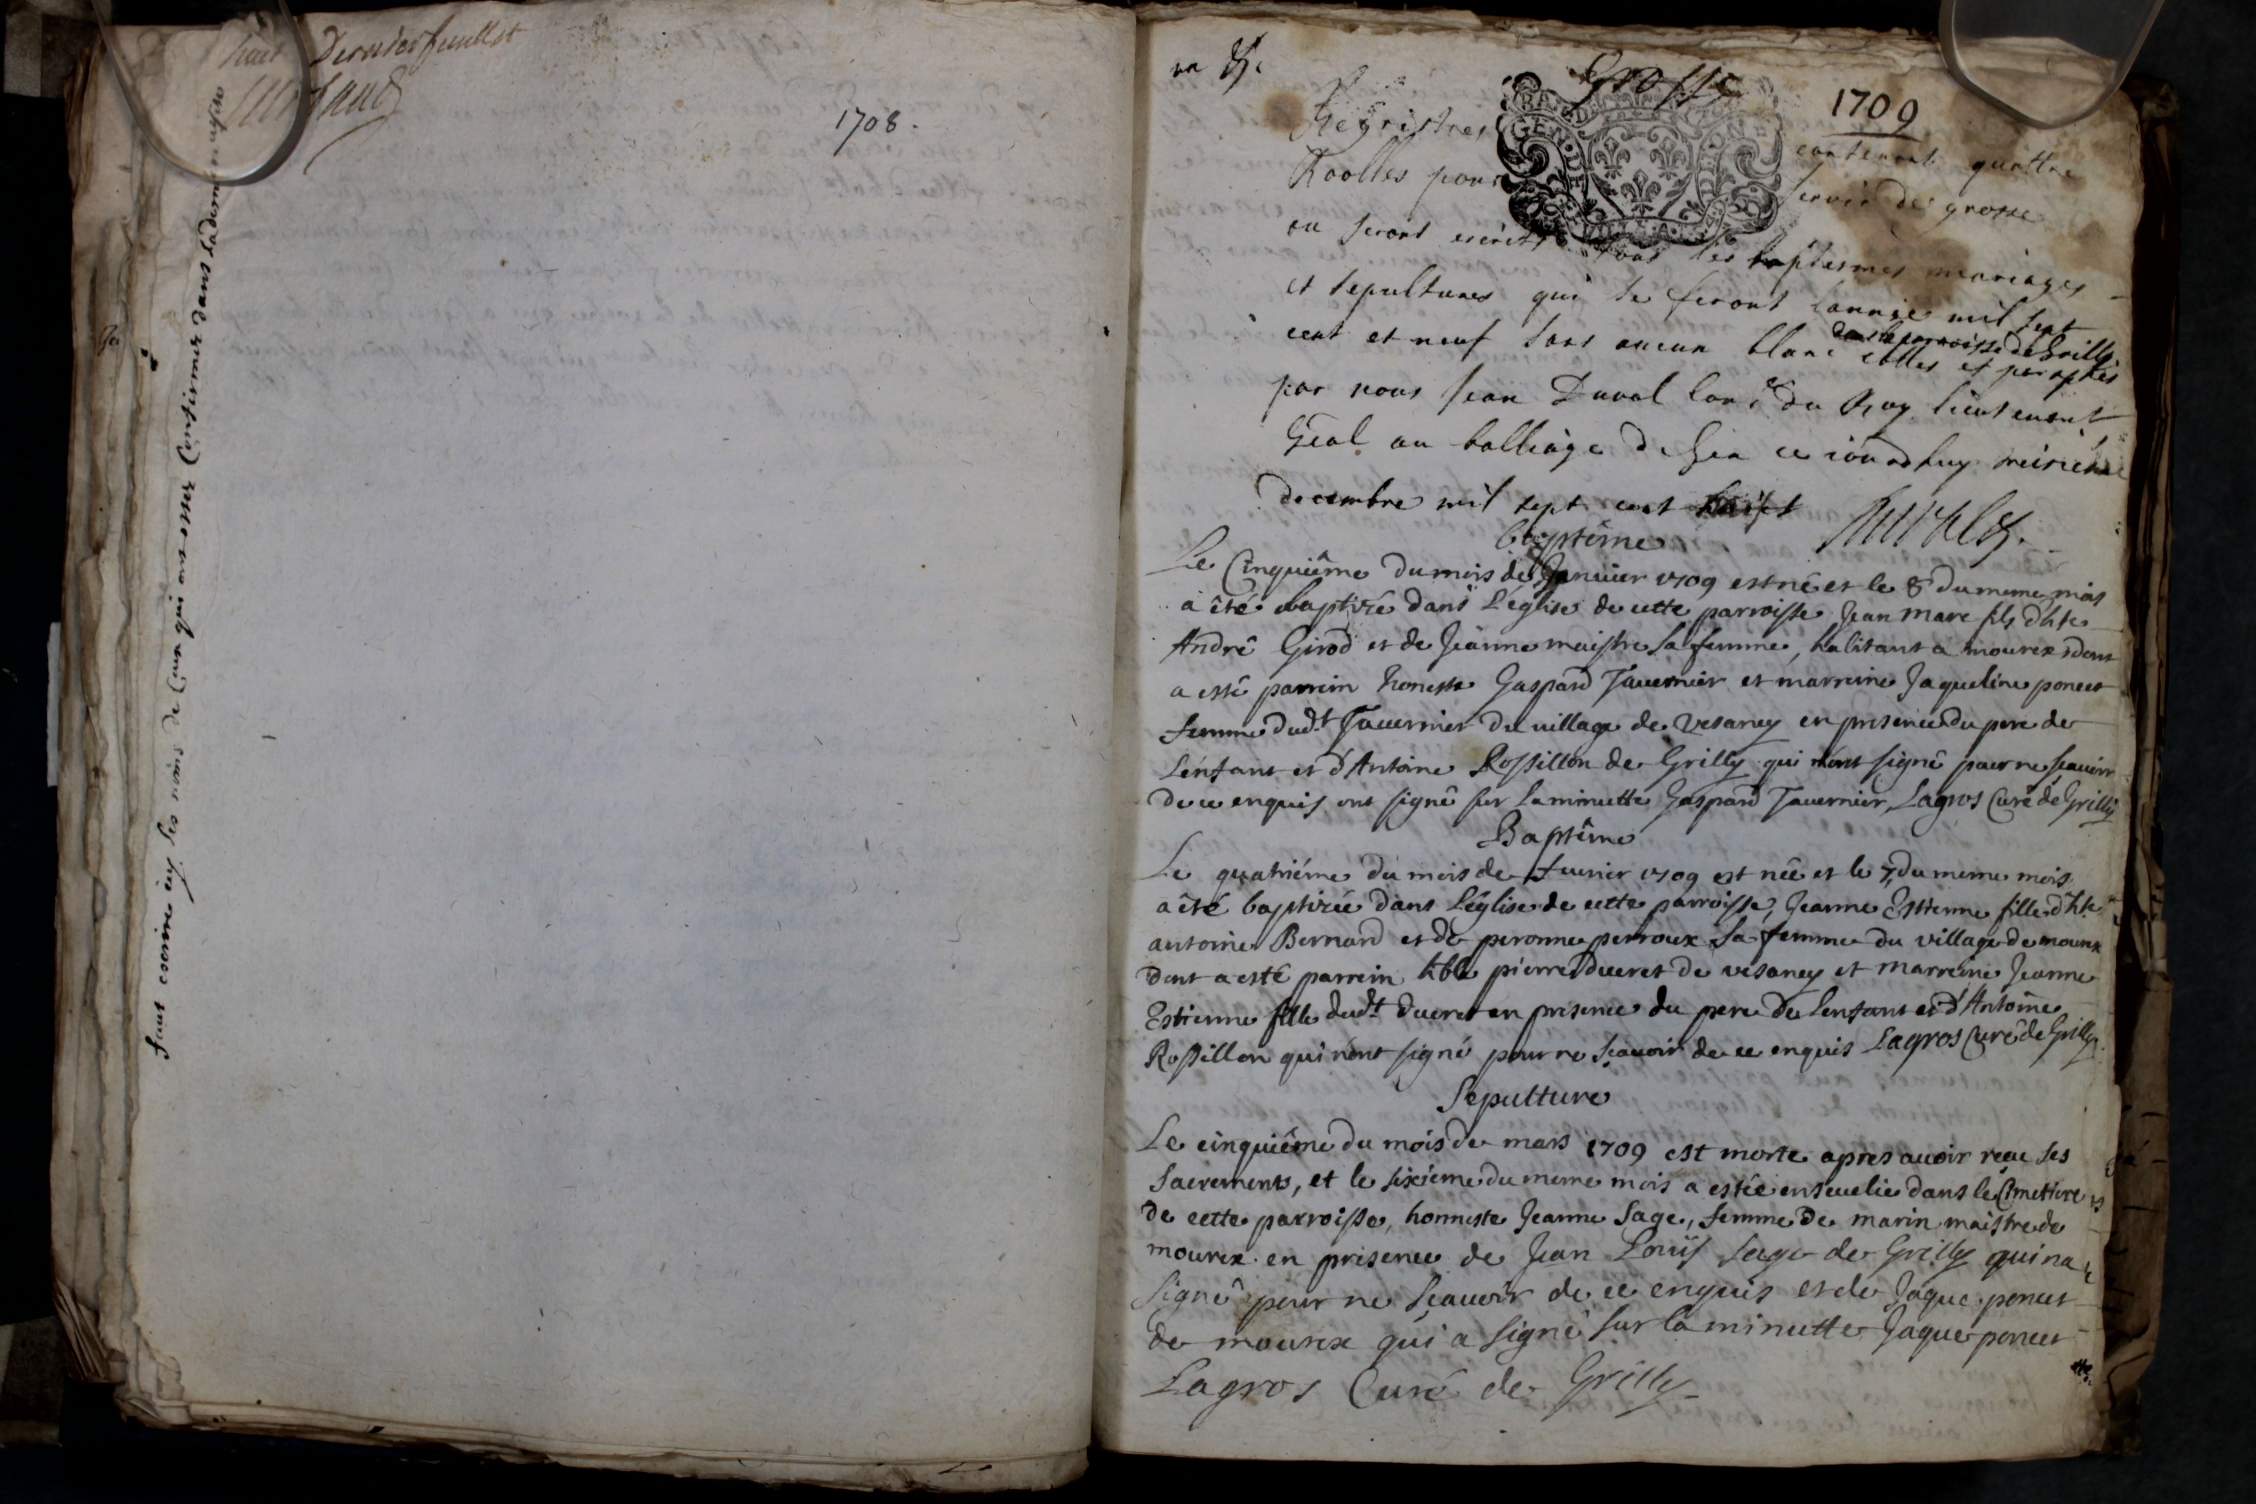 huit Dernier feuillet
1708.
faut escrire icy les noms de Ceux qui ont esté Confirmés dans
Grosse
1709
Regristres contenant quattre
Roolles pour servir de grosse
ou seront escrits tous les baptesmes mariages
et sepultures qui se feront lannée mil sept
dans la parroisse de Grilly
cent et neuf sans aucun blanc cottes et paraphés
par nous Jean Duval Con.er du Roy lieutenant
Gñal au balliage de Gex ce jourdhuy
decembre mil sept cent huict
baptême
Le Cinquiême du mois de Janvier 1709 est né et le 8 du meme mois
a êté baptizé dans L'église de cette parroisse Jean Marc fils d'hte
André Girod et de Jeanne maistre sa femme, habitant a mourex dont
a esté parrein honeste Gaspard Tavernier et marreine Jaqueline poncet
femme dud.t Tavernier du village de Vesancy en presence du pere de
L'enfant et d'Antoine Rossillon de Grilly qui n'ont signé pour ne sçavoir
de ce enquis, ont signé sur la minutte Gaspard Tavernier, Lagros Curé de Grilly
Baptême
Le quatriéme du mois de fevrier 1709 est née et le 7 du meme mois
a êté baptizée dans L'église de cette parroisse, Jeanne Estienne fille d'hte
antoine Bernard et de peronne perroux sa femme du village de mourex
dont a esté parrein hble pierre ducret de vesancy et marreine Jeanne
Estienne fille dud.t Ducret en presence du pere de L'enfant et d'Antoine
Rossillon qui n'ont signé pour ne sçavoir de ce enquis Lagros Curé de Grilly
Sepulture
Le cinquiême du mois de mars 1709 est morte apres avoir reçu ses
Sacrements, et le sixiême du meme mois a estée ensevelie dans le Cimetiere
de cette parroisse, honneste Jeanne Sage, femme de marin maistre de
mourex en presence de Jean Louis Sage de Grilly qui n'a
signé pour ne sçavoir de ce enquis et de Jaque poncet
de mourex qui a signé sur la minutte Jaque poncet
Lagros Curé de Grilly